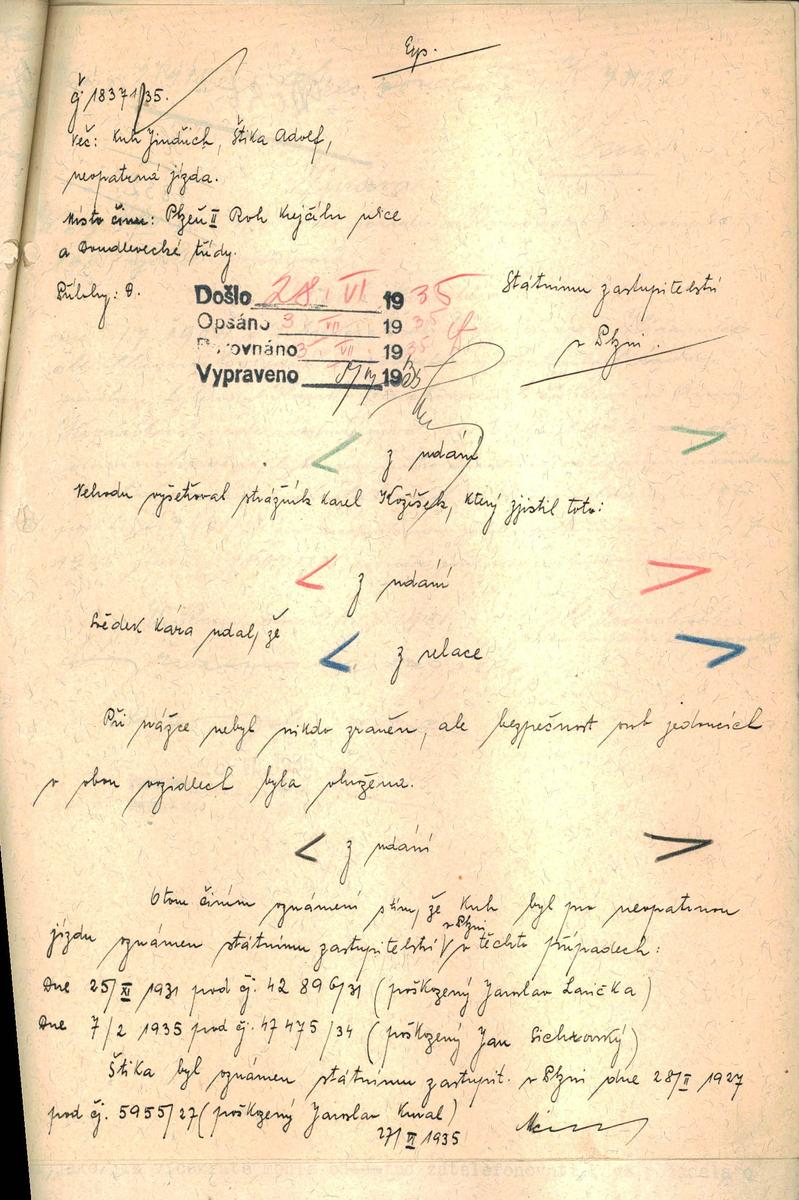 Exp.
čj 18371/35.
Věc: Kuh Jindřich, Štika Adolf,
neopatrná jízda.
Místo činu: Plzeň II Roh Krejčího ulice
a Doudlevecké třídy.
Přílohy: 9.
Státnímu zastupitelství
v Plzni.
Došlo 28. VI. 1935
Opsáno 3 VII 1935
Porovnáno 3. VII. 1935
Vypraveno 1935
< z udání >
Nehodu vyšetřoval strážník Karel Kozíšek, který zjistil toto:
< z udání >
Svědek Kára udal, že
< z relace >
Při srážce nebyl nikdo zraněn, ale bezpečnost osob jedoucích
v obou vozidlech byla ohrožena.
< z udání >
O tom činím oznámení s tím, že Kuh byl pro neopatrnou
jízdu oznámen státnímu zastupitelství v Plzni v těchto případech:
Dne 25/XI 1931 pod čj. 42 896/31 (poškozený Jaroslav Lavička)
Dne 7/2 1935 pod čj. 47 475/34 (poškozený Jan Sichrovský)
Štika byl oznámen státnímu zastupit. v Plzni dne 28/II 1927
pod čj. 5955/27 (poškozený Jaroslav)
27/VI 1935